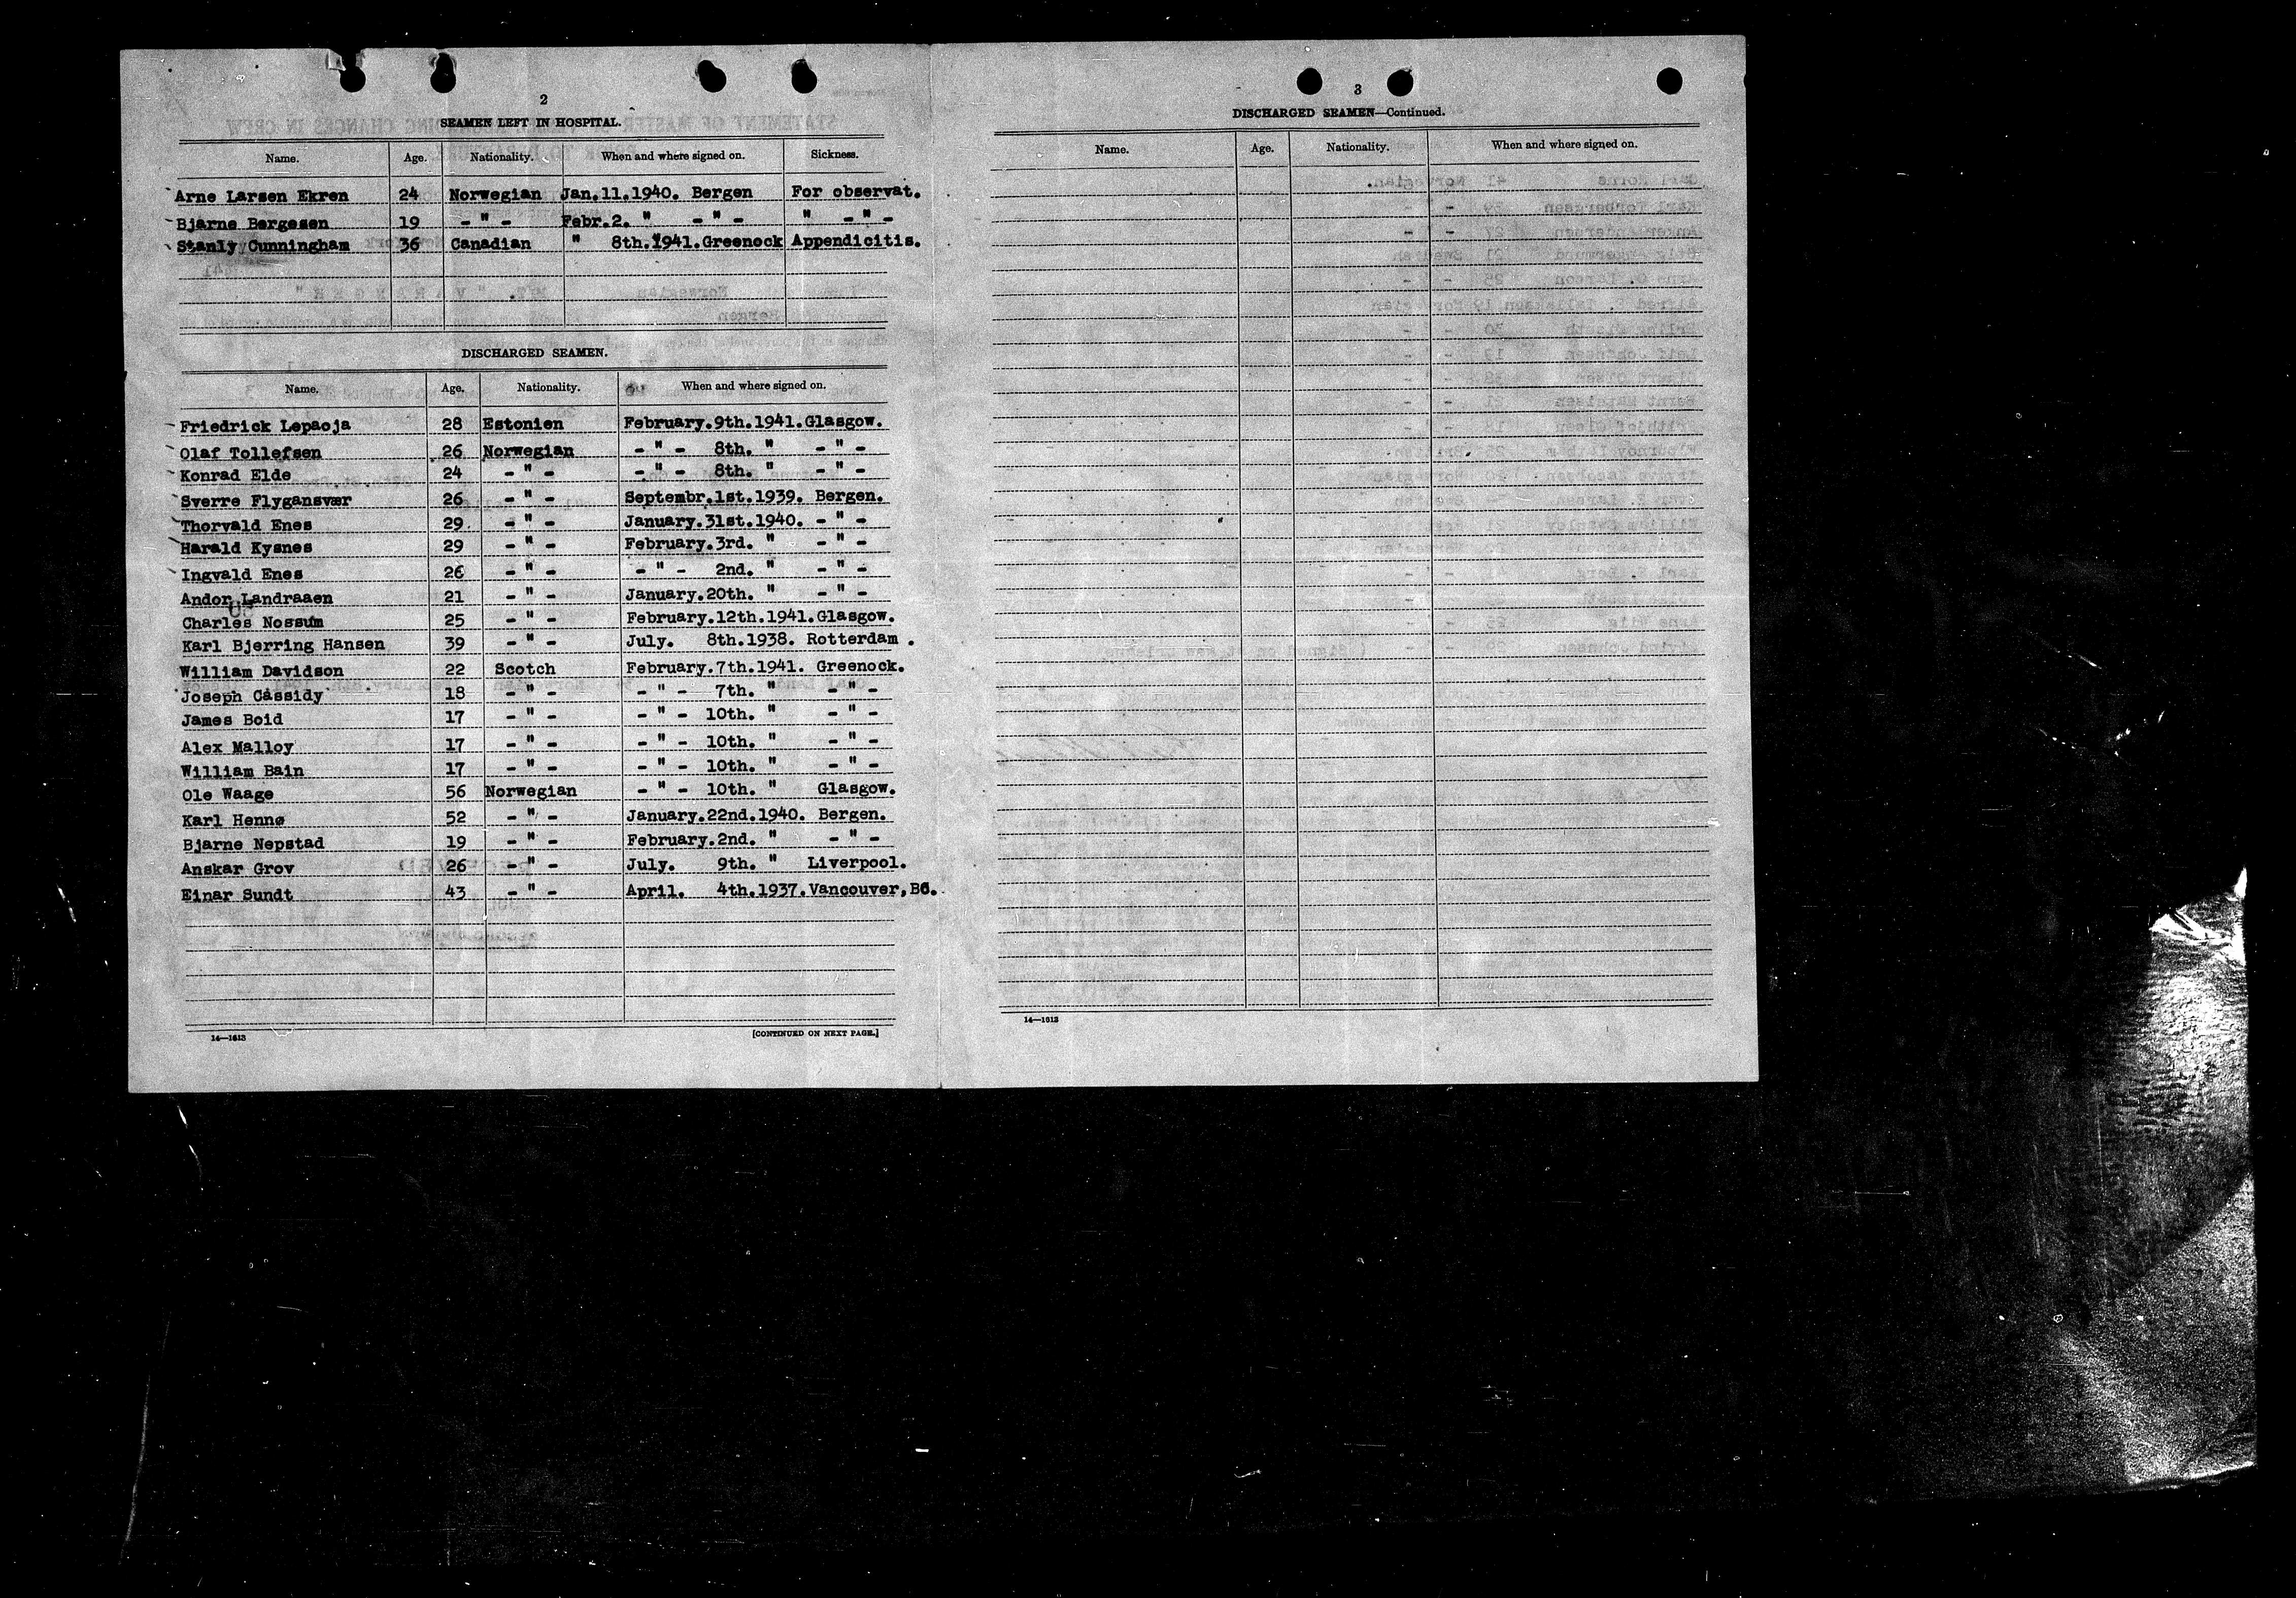 2
SEAMEN LEFT IN HOSPITAL.
Name. Age. Nationality. When and where signed on. Sickness.
Arne Larsen Ekren 24 Norwegian Jan.11.1940. Bergen For observat.
Bjarne Bergesen 19 - " - Febr.2. " - " - " - " -
Stanly Cunningham 36 Canadian " 8th.1941.Greenock Appendicitis.
DISCHARGED SEAMEN.
Name. Age. Nationality. When and where signed on.
Friedrick Lepaoja 28 Estonien February.9th.1941.Glasgow.
Olaf Tollefsen 26 Norwegian - " - 8th. " - " -
Konrad Elde 24 - " - - " - 8th. " - " -
Sverre Flygansvær 26 - " - Septembr.1st.1939. Bergen.
Thorvald Enes 29. - " - January.31st.1940. - " -
Harald Kysnes 29 - " - February.3rd. " - " -
Ingvald Enes 26 - " - - " - 2nd. " - " -
Andor Landraaen 21 - " - January.20th. " - " -
Charles Nossum 25 - " - February.12th.1941.Glasgow.
Karl Bjerring Hansen 39 - " - July. 8th.1938. Rotterdam .
William Davidson 22 Scotch February.7th.1941. Greenock.
Joseph Cassidy 18 - " - - " - 7th. " - " -
James Boid 17 - " - - " - 10th. " - " -
Alex Malloy 17 - " - - " - 10th. " - " -
William Bain 17 - " - - " - 10th. " - " -
Ole Waage 56 Norwegian - " - 10th. " Glasgow.
Karl Hennø 52 - " - January.22nd.1940. Bergen.
Bjarne Nepstad 19 - " - February.2nd. " - " -
Anskar Grov 26 - " - July. 9th. " Liverpool.
Einar Sundt 43 - " - April. 4th.1937.Vancouver,BC.
14—1613 [CONTINUED ON NEXT PAGE.]
3
DISCHARGED SEAMEN—Continued.
Name. Age. Nationality. When and where signed on.
14—1613